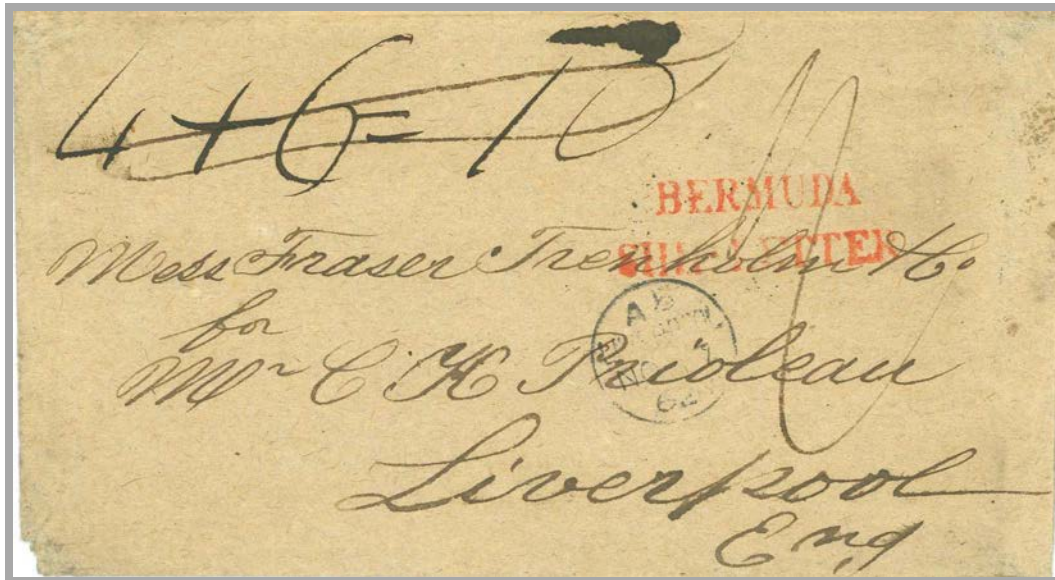 4 + 6 = 10
BERMUDA
SHIP LETTER
Mess Fraser Trenholm & Co
for
Mr C K Prioleau
Liverpool
Eng
62